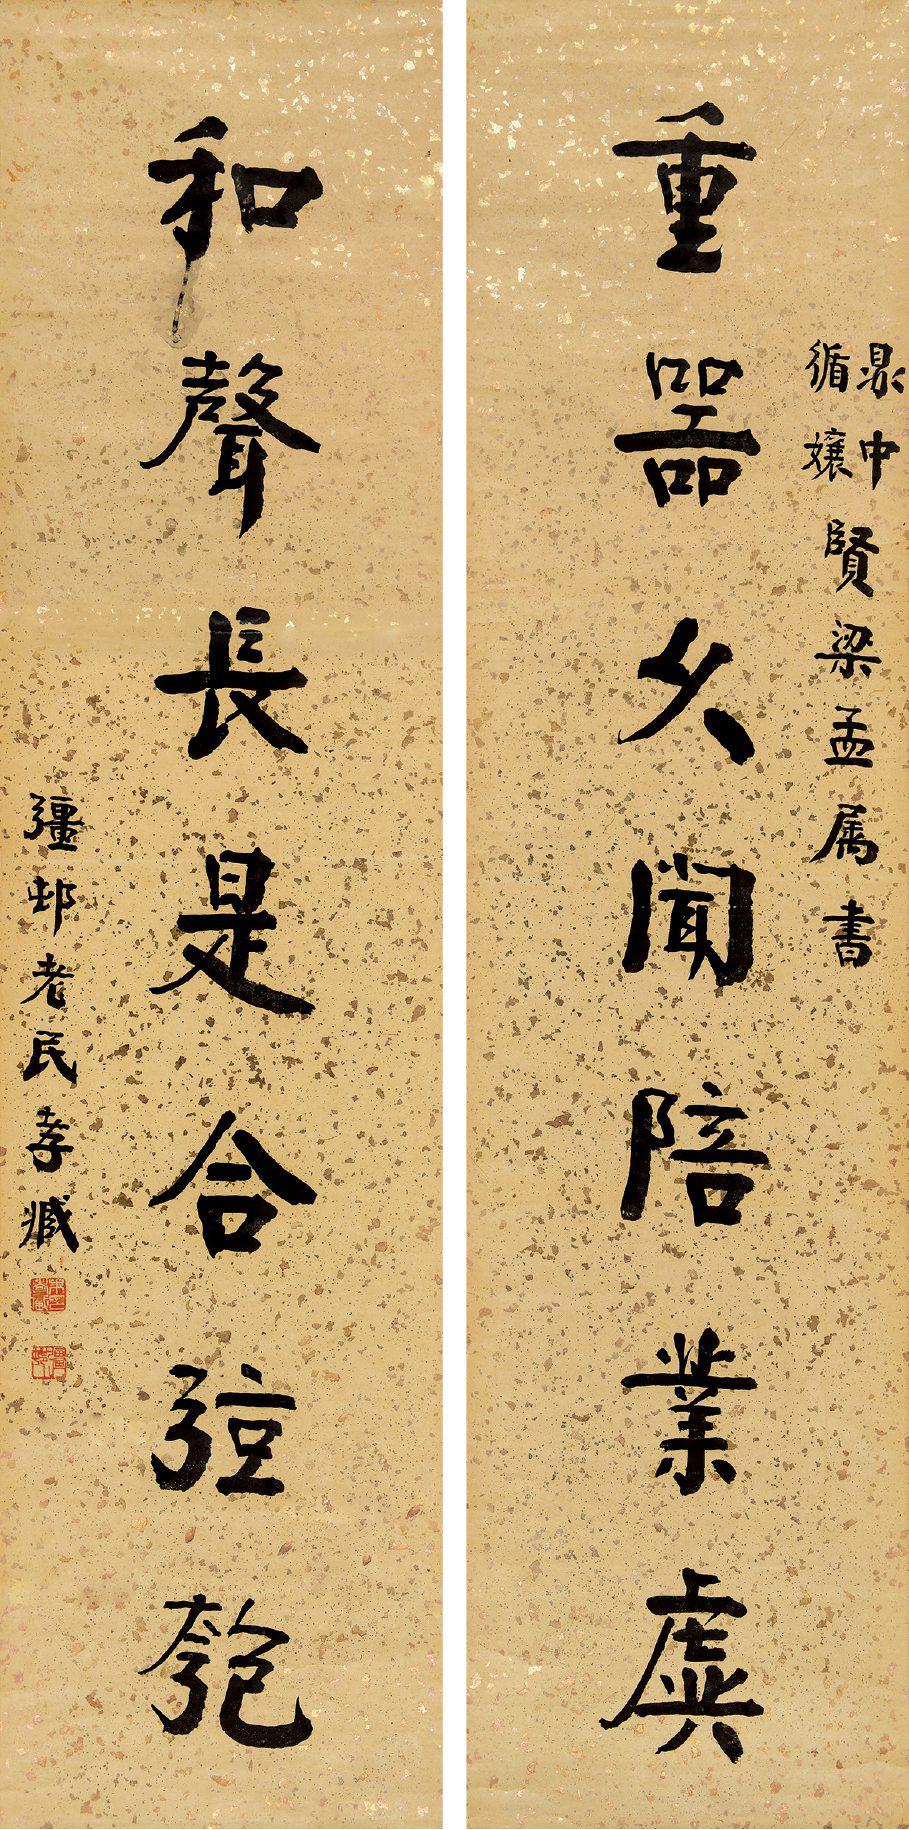 重器久聞陪業虡
鼎中
循孃
賢梁孟属書
和聲長是合弦匏
彊邨老民孝臧